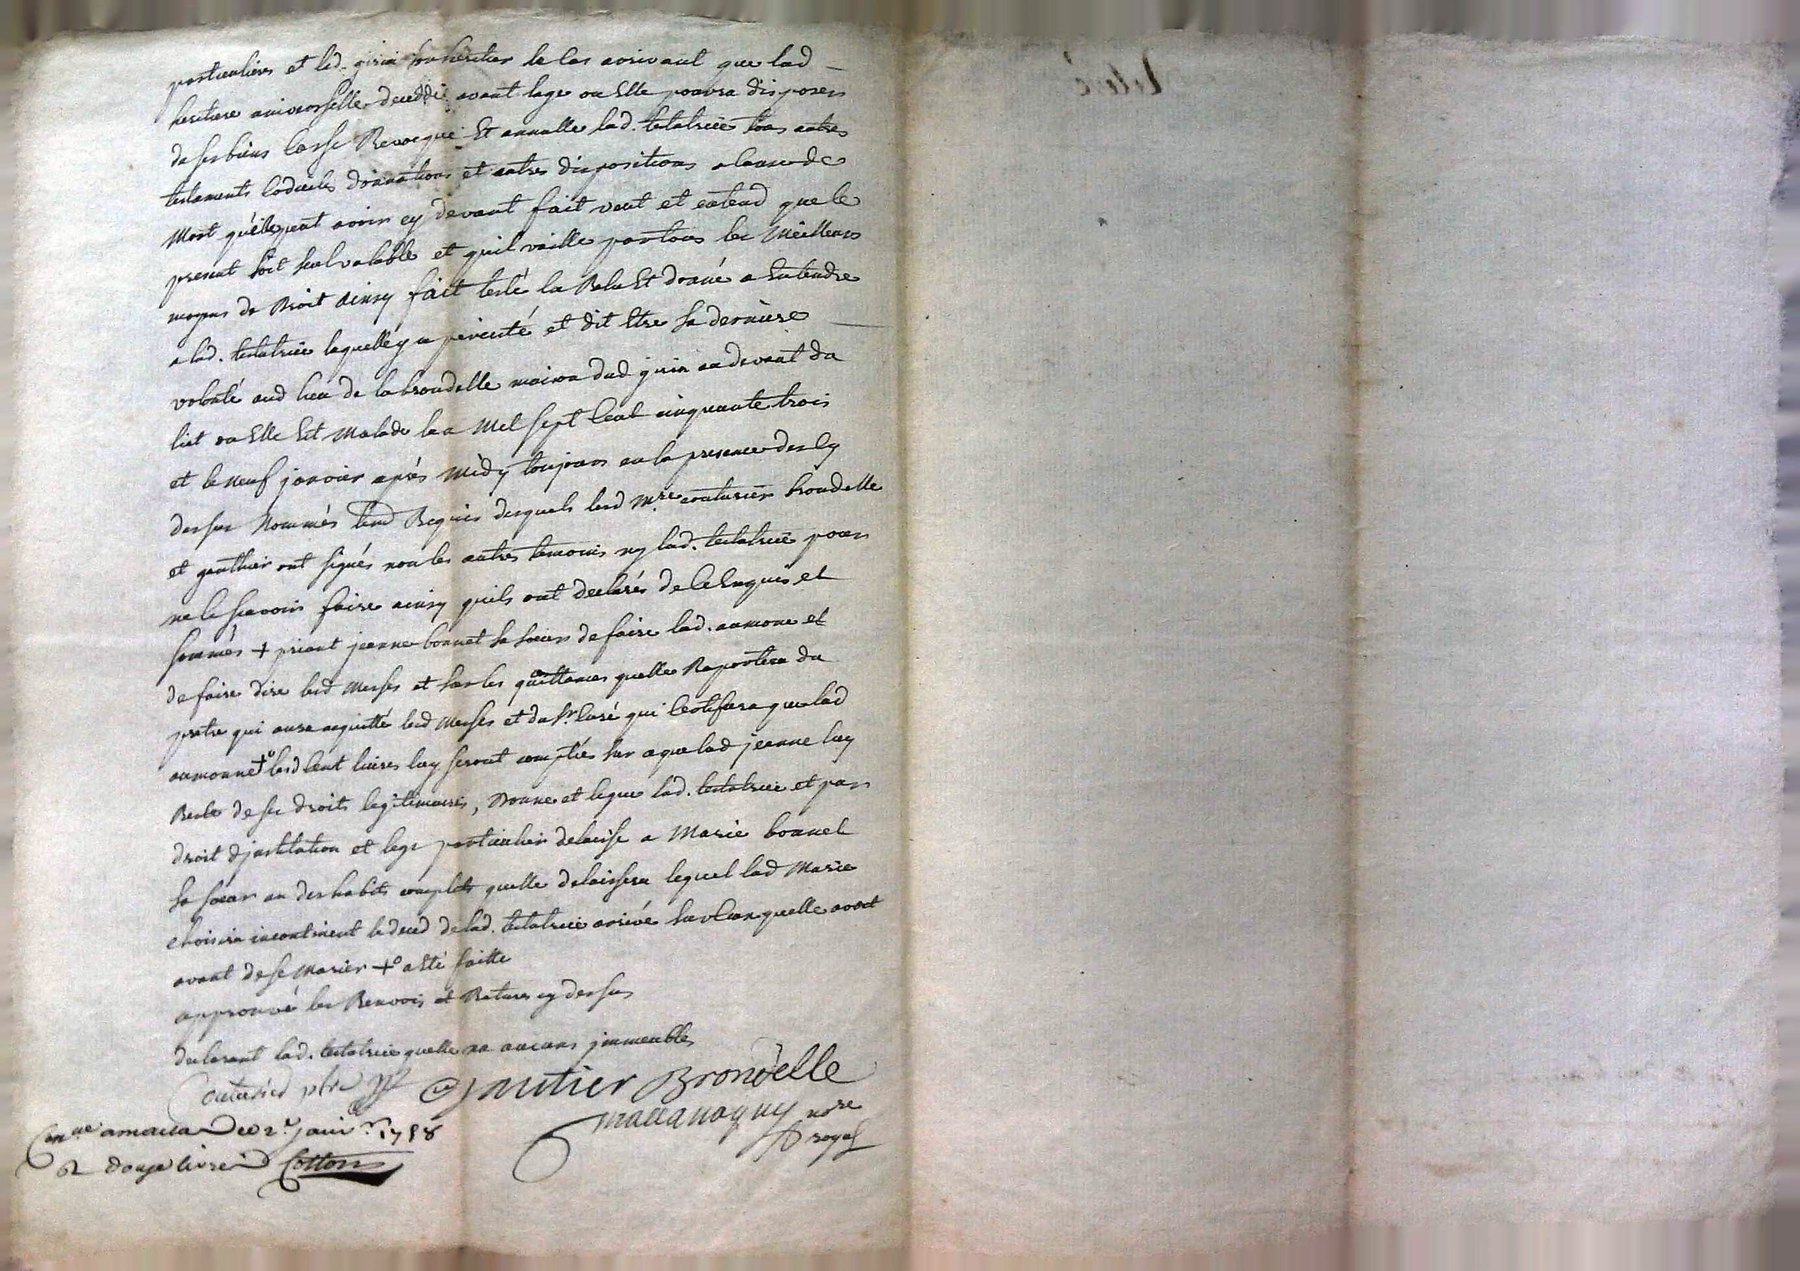 particulieres et led. girin son heritier le cas arrivant que lad
heritiere universselle deceddé avant lage ou Elle pourra disposer
de ses biens Casse Revocque Et annulle lad. testatrice tous autres
testaments Codiciles donnations et autres dispositions a cause de
Mort qu'elle peut avoir cy devant fait veut et entend que le
present soit seul valable et quil vaille par tous les Meilleurs
moyens de Droit ainsy fait testé lu Relu Et donné a Entendre
a lad. testatrice laquelle y a percisté et dit Etre sa derniere
volonté aud lieu de la brondelle maison dud girin au devant du
lict ou Elle Est Malade le a Mil sept Cent cinquante trois
et le neuf janvier aprés Midy toujours en la presence des Cy
dessus Nommés temd Requis desquels led mre couturier brondelle
et gauthier ont signés non les autres temoins ny lad. testatrice pour
ne le scavoir faire ainsy quils ont declarés de ce Enquis et
sommés + priant jeanne bonnet sa soeur de faire lad. aumone et
de faire dire lesd Messes et sur les quittances quelle Raportera du
pretre qui aura acquitté lesd Messes et du Sr Curé qui Certifiera que lad
aumonne +o lesd Cent livres luy seront comptées sur ce que lad jeanne luy
Reste de ses droits legitimaires, Donne et legue lad. testatrice et par
droit djnstitution et legs particulier delaisse a Marie bonnet
sa soeur un des habits complets quelle delaissera lequel lad Marie
choisira incontinent le deced de lad. testatrice arrivé sur Ceux quelle avoit
avant de se Marier +o a Eté faitte
approuvé les Renvois et Ratures cy dessus
declarant lad. testatrice quelle na aucuns jmmeubles
Couturier ptre Gautier Brondelle
nore
royal
Connue 2e janvr 1758
douze livres Cotton